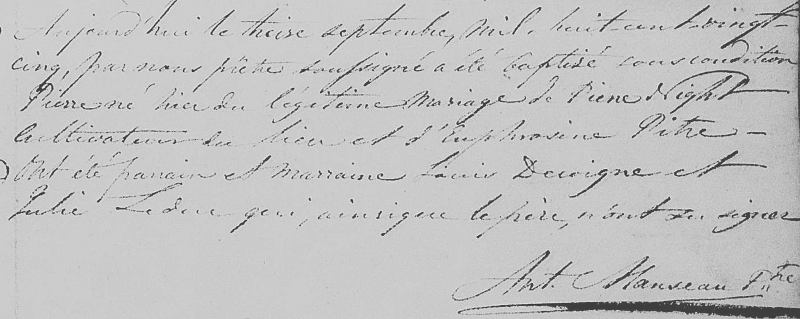 Aujourd'hui le treise septembre, mil. huit cent vingt-
cinq, par nous prêtre soussigné a été baptisé sous condition
Pierre né hier du légitime mariage de Pierre Night
cultivateur du lieu et d'Euphrosine Pitre –
Ont été parain et marraine Louis Devoigne et
Julie Leduc qui, ainsi que le père, n'ont su signer
Ant. Manseau Ptre